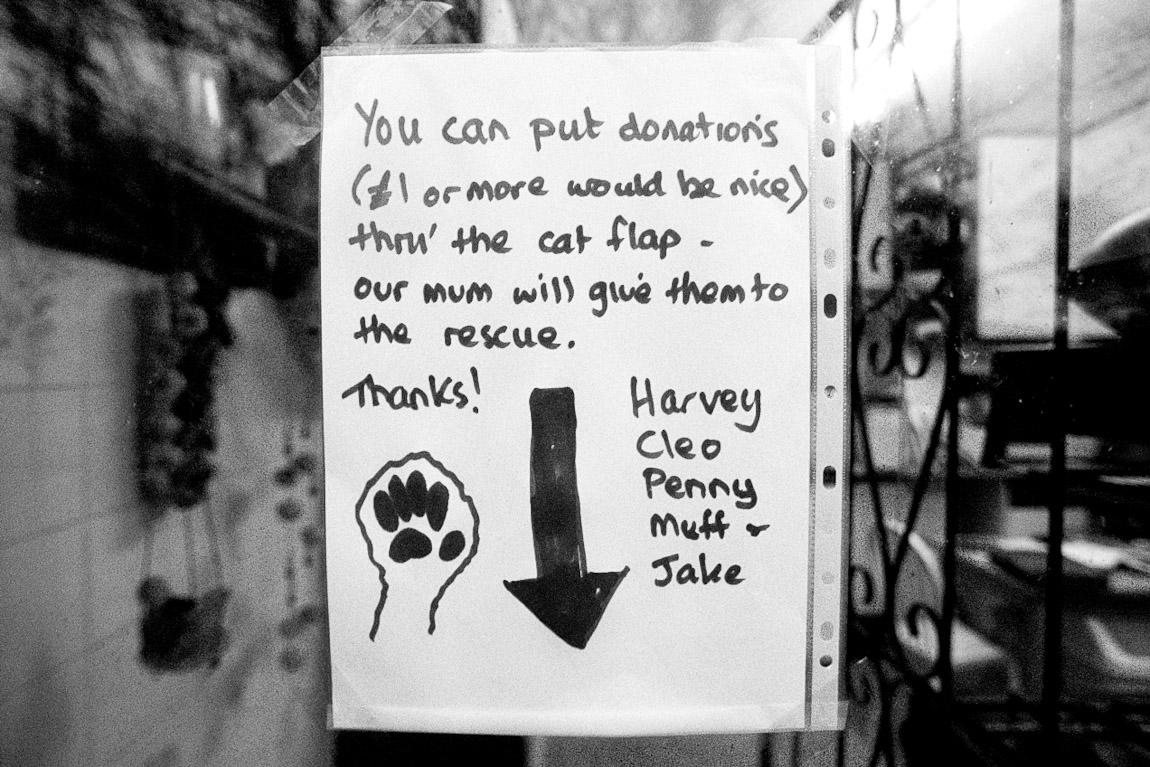 You can put donations
(£1 or more would be nice)
thru' the cat flap -
our mum will give them to
the rescue.
Thanks!
Harvey
Cleo
Penny
Muff &
Jake